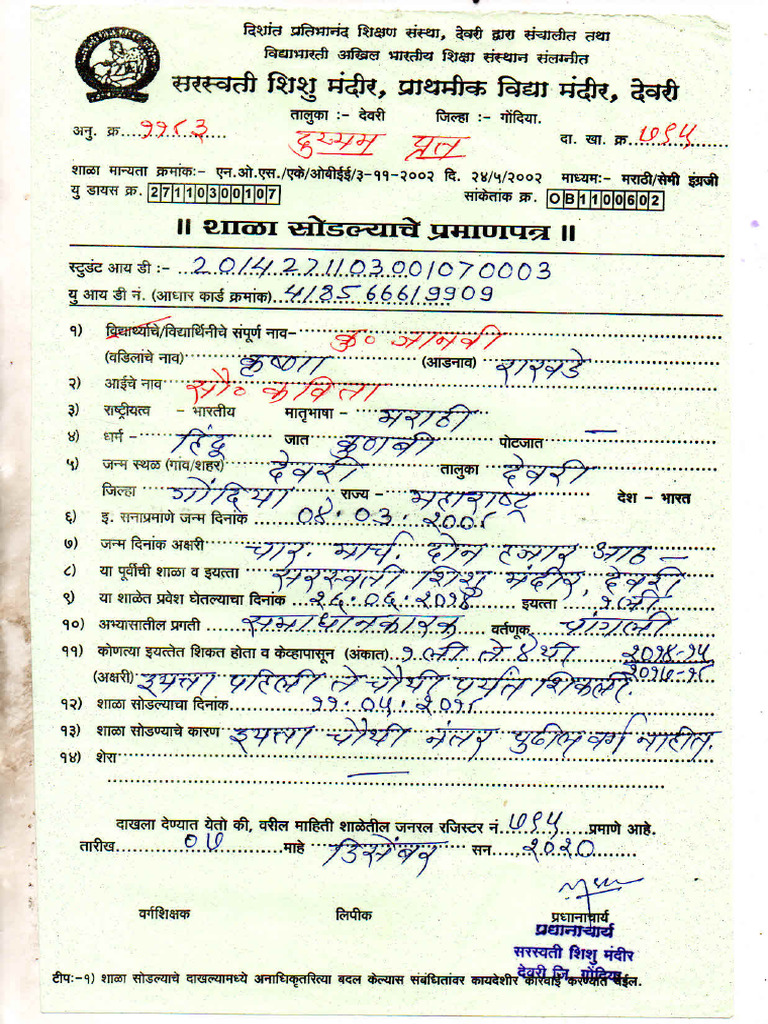 दिशांत प्रतिभानंद शिक्षण संस्था, देवरी द्वारा संचालीत तथा
विद्याभारती अखिल भारतीय शिक्षा संस्थान संलग्नीत
सरस्वती शिशु मंदीर, प्राथमीक विद्या मंदीर, देवरी
तालुका :- देवरी जिल्हा :- गोंदिया.
अनु. क्र. ११८३ दुय्यम प्रत दा. खा. क्र. ७९५
शाळा मान्यता क्रमांक:- एन.ओ.एस./एके/ओबीईई/३-११-२००२ दि. २४/५/२००२ माध्यम:- मराठी/सेमी इंग्रजी
यु डायस क्र. 27110300107 सांकेतांक क्र. OB1100602
॥ शाळा सोडल्याचे प्रमाणपत्र ॥
स्टुडंट आय डी :- 2014271103001070003
यु आय डी नं. (आधार कार्ड क्रमांक) 418566619909
१) विद्यार्थ्याचे/विद्यार्थिनीचे संपूर्ण नाव- कु॰ जानवी
(वडिलांचे नाव) कृष्णा (आडनाव) राखडे
२) आईचे नाव सौ॰ कविता
३) राष्ट्रीयत्व - भारतीय मातृभाषा - मराठी
४) धर्म - हिंदू जात कुणबी पोटजात —
५) जन्म स्थळ (गांव/शहर) देवरी तालुका देवरी
जिल्हा गोंदिया राज्य - महाराष्ट्र देश - भारत
६) इ. सनाप्रमाणे जन्म दिनांक ०४.०३.२००८
७) जन्म दिनांक अक्षरी चार. मार्च. दोन हजार आठ —
८) या पूर्वीची शाळा व इयत्ता सरस्वती शिशु मंदीर, देवरी
९) या शाळेत प्रवेश घेतल्याचा दिनांक २६.०६.२०१४ इयत्ता १ ली.
१०) अभ्यासातील प्रगती समाधानकारक वर्तणूक चांगली
११) कोणत्या इयत्तेत शिकत होता व केव्हापासून (अंकात) १ ली ते ४ थी २०१४-१५
(अक्षरी) इयत्ता पहिली ते चौथी पर्यंत शिकली. २०१७-१८
१२) शाळा सोडल्याचा दिनांक ११.०५.२०१८
१३) शाळा सोडण्याचे कारण इयत्ता चौथी नंतर पुढील वर्ग नाहीत.
१४) शेरा —
दाखला देण्यात येतो की, वरील माहिती शाळेतील जनरल रजिस्टर नं. ७९५ प्रमाणे आहे.
तारीख ०७ माहे डिसेंबर सन २०२०
वर्गशिक्षक लिपीक प्रधानाचार्य
प्रधानाचार्य
सरस्वती शिशु मंदीर
देवरी जि. गोंदिया
टीप:-१) शाळा सोडल्याचे दाखल्यामध्ये अनाधिकृतरित्या बदल केल्यास संबंधितांवर कायदेशीर कारवाई करण्यात येईल.